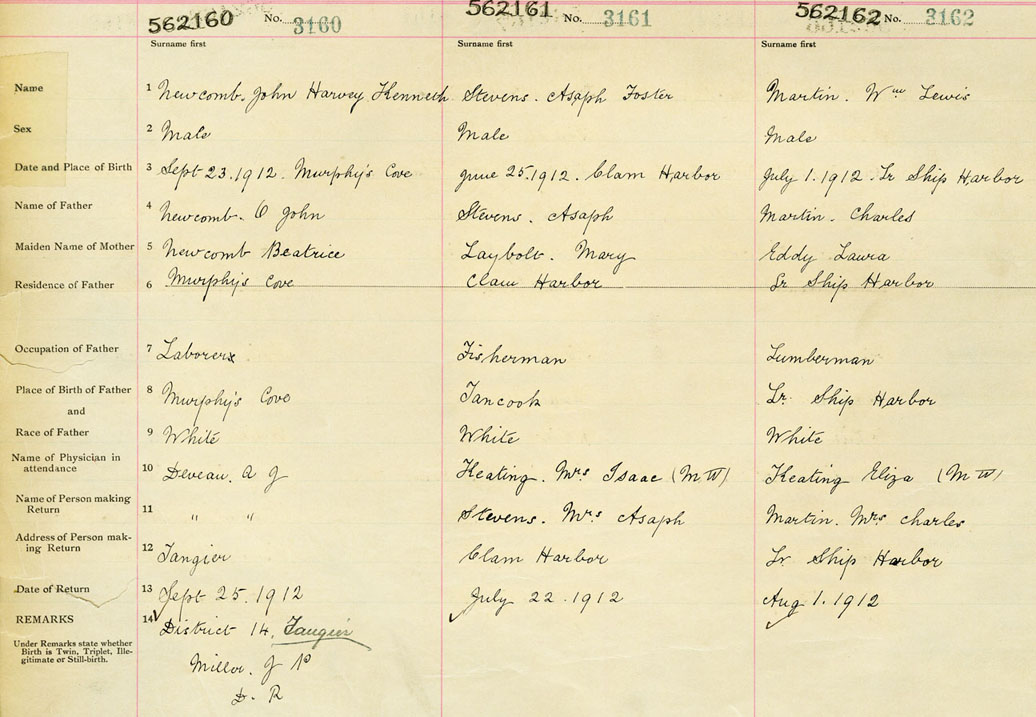 562160 No. 3160 562161 No. 3161 562162 No. 3162
Surname first Surname first Surname first
Name 1 Newcomb. John Harvey Kenneth Stevens. Asaph Foster Martin. Wm Lewis
Sex 2 Male Male Male
Date and Place of Birth 3 Sept 23.1912. Murphy's Cove June 25.1912. Clam Harbor July 1.1912. Lr Ship Harbor
Name of Father 4 Newcomb. O John Stevens. Asaph Martin. Charles
Maiden Name of Mother 5 Newcomb Beatrice Laybolt. Mary Eddy Laura
Residence of Father 6 Murphy's Cove Clam Harbor Lr Ship Harbor
Occupation of Father 7 Laborer Fisherman Lumberman
Place of Birth of Father 8 Murphy's Cove Tancook Lr. Ship Harbor
and
Race of Father 9 White White White
Name of Physician in
attendance 10 Deveau. A J Keating. Mrs Isaac (M W) Keating Eliza (M W)
Name of Person making
Return 11 " " Stevens. Mrs Asaph Martin. Mrs Charles
Address of Person mak-
ing Return 12 Tangier Clam Harbor Lr Ship Harbor
Date of Return 13 Sept 25.1912 July 22.1912 Aug 1.1912
REMARKS 14 District 14. Tangier
Under Remarks state whether
Birth is Twin, Triplet, Ille-
gitimate or Still-birth.
J P
D. R